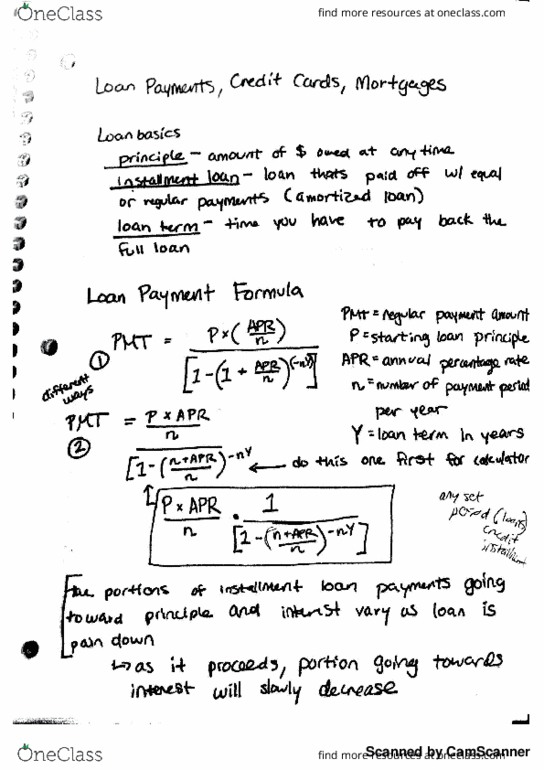 OneClass
find more resources at oneclass.com
Loan Payments, Credit Cards, Mortgages
Loan basics
principle - amount of $ owed at any time
installment loan - loan thats paid off w/ equal
or regular payments (amortized loan)
loan term - time you have to pay back the
full loan
Loan Payment Formula
different ways
① PMT = P×(APR/n) / [1-(1 + APR/n)^(-nY)]
PMT = regular payment amount
P = starting loan principle
APR = annual percentage rate
n = number of payment period
per year
Y = loan term in years
② PMT = P × APR / n / [1-(n+APR/n)^-nY] ← do this one first for calculator
P × APR / n · 1 / [1-(n+APR/n)^-nY]
any set
period (loans)
credit
installment
the portions of installment loan payments going
toward principle and interest vary as loan is
pain down
↳ as it proceeds, portion going towards
interest will slowly decrease
OneClass
find more resources at oneclass.com
Scanned by CamScanner